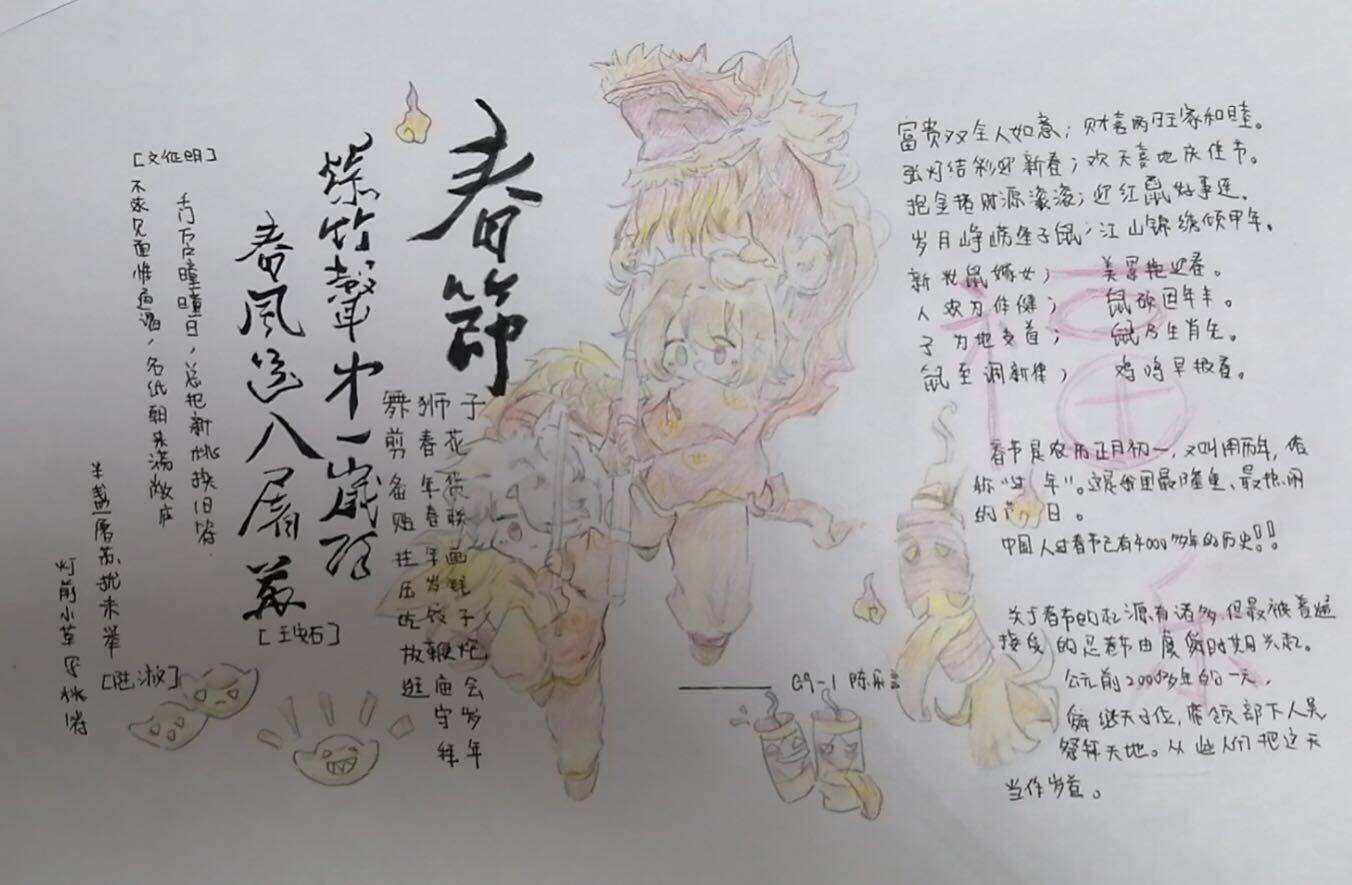 春節
爆竹聲中一歲除
春風送入屠蘇
[王安石]
[文征明]
不求见面惟通谒，名纸朝来满敝庐
千门万户曈曈日，总把新桃换旧符
半盏屠苏犹未举
灯前小草写桃符
[陆游]
舞狮子
剪春花
备年货
贴春联
挂年画
压岁钱
吃饺子
放鞭炮
逛庙会
守岁
拜年
富贵双全人如意；财喜两旺家和睦。
张灯结彩迎新春；欢天喜地庆佳节。
抱金猪财源滚滚；迎红鼠好事连。
岁月峥嵘逢子鼠；江山锦绣颂甲年。
新光鼠嫁女； 美景抱迎春。
人欢为作健； 鼠硕因年丰。
子为地支首； 鼠乃生肖先。
鼠至润新律； 鸡鸣早报春。
福
春节是农历正月初一，又叫阴历年，俗
称“过年”。这是我国最隆重、最热闹
的节日。
中国人过春节已有4000多年的历史！！
关于春节的起源有诸多，但最被普遍
接受的是春节由虞舜时期兴起。
公元前2000多年的一天，
舜继天子位，带领部下人员
祭拜天地。从此人们把这天
当作岁首。
G9-1 陈